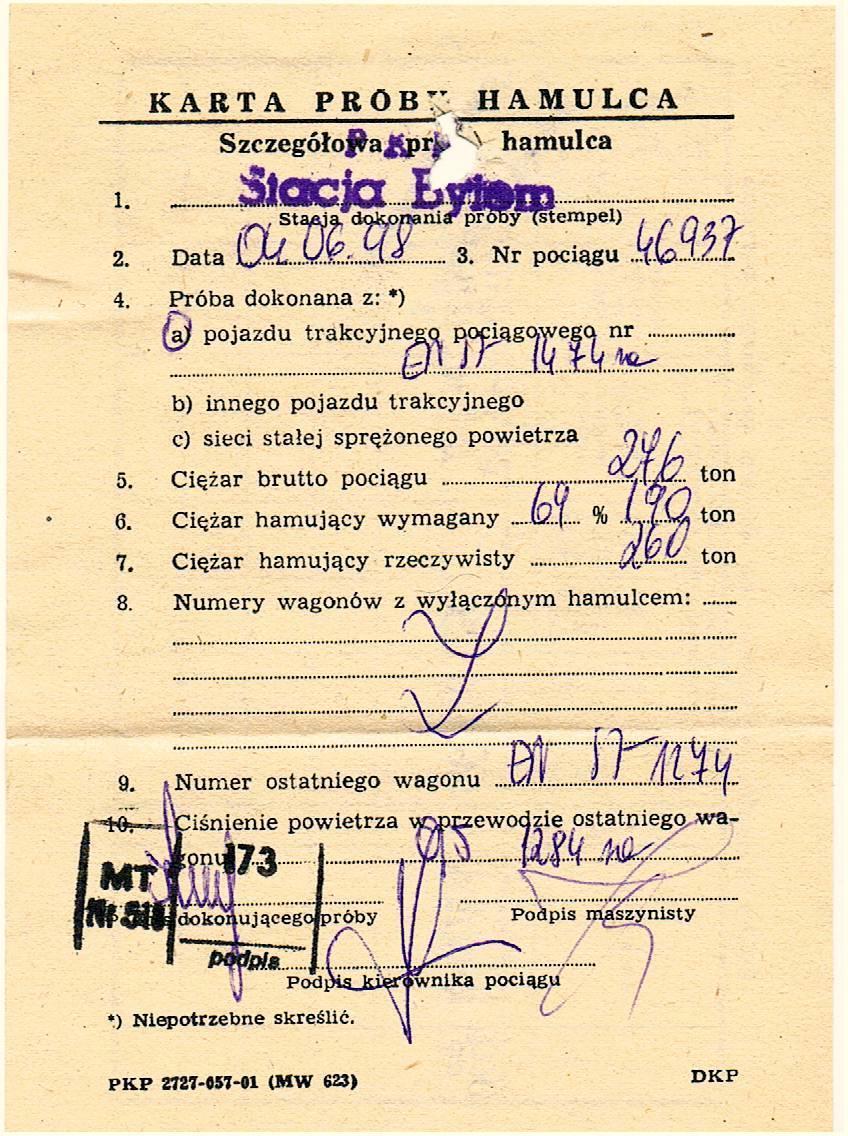 KARTA PRÓBY HAMULCA
Szczegółowa hamulca
PKP
Stacja Bytom
1.
Stacja dokonania próby (stempel)
2. Data 04 06.98 3. Nr pociągu 46937
4. Próba dokonana z: *)
a) pojazdu trakcyjnego pociągowego nr
EN 57 1474 na
b) innego pojazdu trakcyjnego
c) sieci stałej sprężonego powietrza
5. Ciężar brutto pociągu 276 ton
6. Ciężar hamujący wymagany 69 % 190 ton
7. Ciężar hamujący rzeczywisty 260 ton
8. Numery wagonów z wyłączonym hamulcem:
9. Numer ostatniego wagonu EN 57 1274
10. Ciśnienie powietrza w przewodzie ostatniego wa-
gonu 0,5 1284 na
173
MT
Nr
dokonującego próby Podpis maszynisty
podpis
Podpis kierownika pociągu
*) Niepotrzebne skreślić.
PKP 2727-057-01 (MW 623) DKP